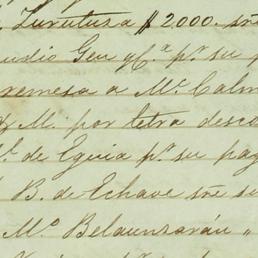 Zurutuza $2000. sre
Claudio Geu y C.ª p.r su p
remesa a Mc. Calm
M. por letra desco
de Eguia p.r su pag
B. de Echave sre se
M.o Belaunzarán "